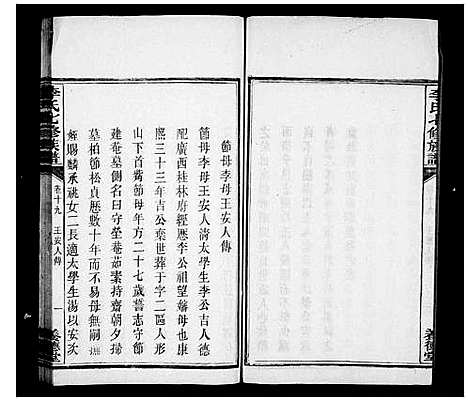 李氏七修族譜
養德堂
節母李母王安人傳
節母李母王安人淸太學生李公吉人德
配廣西桂林府經歷李公祖望蕃母也康
熙三十三年吉人公棄世葬于字二區人形
山下首節母年方二十七歲誓志守節
建菴墓側名曰守塋菴茹素持齋朝夕掃
墓柏節松貞歷數十年而不易母無嗣撫
經賜麟承祧女一長適太學生湯以安次
李氏七修族譜
卷十九 王安人傳 一
養德堂